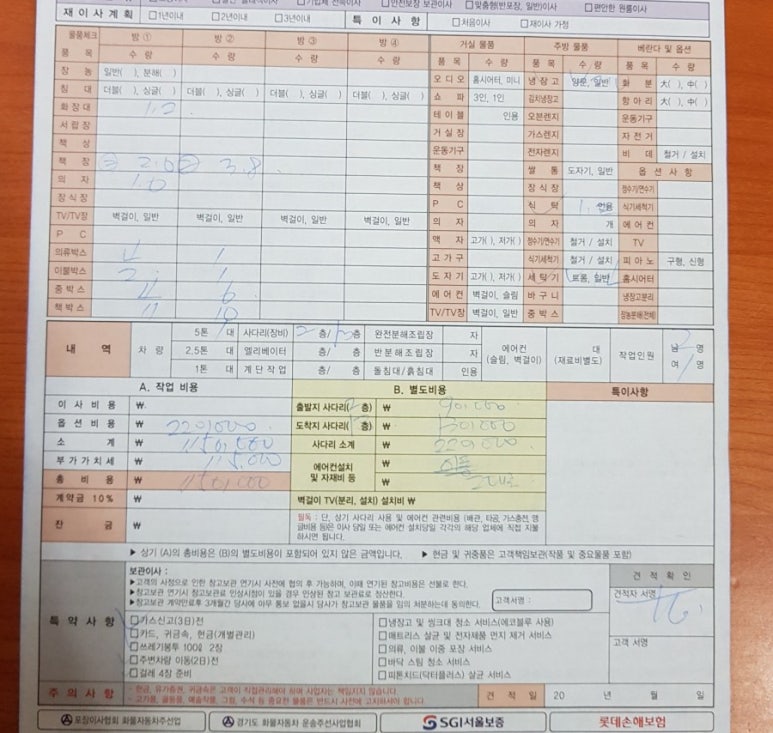 재 이 사 계 획 □1년이내 □2년이내 □3년이내 특 이 사 항 □처음이사 □재이사 가정
물품체크 방 ① 방 ② 방 ③ 방 ④ 거실 물품 주방 물품 베란다 및 옵션
품 목 수 량 수 량 수 량 수 량 품 목 수 량 품 목 수 량 품 목 수 량
장 농 일반( ), 분해( ) 오 디 오 홈시어터, 미니 냉 장 고 양문, 일반 화 분 大( ), 中( )
침 대 더블( ), 싱글( ) 더블( ), 싱글( ) 더블( ), 싱글( ) 더블( ), 싱글( ) 쇼 파 3인, 1인 김치냉장고 항 아 리 大( ), 中( )
화 장 대 1.2 테 이 블 인용 오븐렌지 운동기구
서 랍 장 거 실 장 가스렌지 자 전 거
책 상 운동기구 전자렌지 비 데 철거 / 설치
책 장 2.0 3.8 책 장 쌀 통 도자기, 일반 옵 션 사 항
의 자 1.0 책 상 장 식 장 정수기/연수기
장 식 장 P C 식 탁 인용 식기세척기
TV/TV장 벽걸이, 일반 벽걸이, 일반 벽걸이, 일반 벽걸이, 일반 의 자 의 자 개 에 어 컨
P C 액 자 고가( ), 저가( ) 정수기/연수기 철거 / 설치 TV
의류박스 1 고 가 구 식기세척기 철거 / 설치 피 아 노 구형, 신형
이불박스 2 1 도 자 기 고가( ), 저가( ) 세 탁 기 드롬, 일반 홈시어터
중 박 스 6 에 어 컨 벽걸이, 슬림 바 구 니 냉장고분리
책 박 스 11 10 TV/TV장 벽걸이, 일반 중 박 스 장농분해(전체)
내 역 차 량 5톤 대 사다리(장비) 층/ 층 완전분해조립장 자 에어컨 (슬림, 벽걸이) 대 (재료비별도) 작업인원 남 명
2.5톤 대 엘리베이터 층/ 층 반분해조립장 자 여 명
1톤 대 계 단 작 업 층/ 층 돌침대/흙침대 인용
A. 작업 비용 B. 별도비용 특이사항
이 사 비 용 ₩ 출발지 사다리( 층) ₩
옵 션 비 용 ₩ 도착지 사다리( 층) ₩
소 계 ₩ 사다리 소계 ₩
부 가 가 치 세 ₩ 에어컨설치 및 자재비 등 ₩
총 비 용 ₩ ₩
계약금 10% ₩ 벽걸이 TV(분리, 설치) 설치비 ₩
잔 금 ₩ 필독 : 단, 상기 사다리 사용 및 에어컨 관련비용 (배관, 타공, 가스충전, 앵글비용 등)은 이사 당일 또는 에어컨 설치당일 각각의 해당 업체에 직접 지불하시면 됩니다.
▶ 상기 (A)의 총비용은 (B)의 별도비용이 포함되어 있지 않은 금액입니다. ▶ 현금 및 귀중품은 고객책임보관(작품 및 중요물품 포함)
특 약 사 항 보관이사 : 견 적 확 인
▶고객의 사정으로 인한 창고보관 연기시 사전에 협의 후 가능하며, 이때 연기된 창고비용은 선불로 한다. 견적자 서명
▶창고보관 연기시 창고보관료 인상시점이 있을 경우 인상된 창고 보관료로 정산한다.
▶창고보관 계약만료후 3개월간 당사에 아무 통보 없을시 당사가 창고보관 물품을 임의 처분하는데 동의한다. 고객서명 :
□가스신고(3일)전 □냉장고 및 씽크대 청소 서비스(에코블루 사용)
□카드, 귀금속, 현금(개별관리) □매트리스 살균 및 전자제품 먼지 제거 서비스 고객 서명
□쓰레기봉투 100ℓ 2장 □의류, 이불 이중 포장 서비스
□주변차량 이동(2일)전 □바닥 스팀 청소 서비스
□걸레 4장 준비 □피톤치드(닥터플러스) 살균 서비스
주 의 사 항 - 현금, 유가증권, 귀금속은 고객이 직접관리해야 하며 사업자는 책임지지 않습니다. 견 적 일 20 년 월 일
- 고가품, 골동품, 예술작품, 그림, 수석 등 중요한 물품은 반드시 사전에 고지하셔야 합니다.
포장이사협회 화물자동차주선업 경기도 화물자동차 운송주선사업협회 SGI서울보증 롯데손해보험